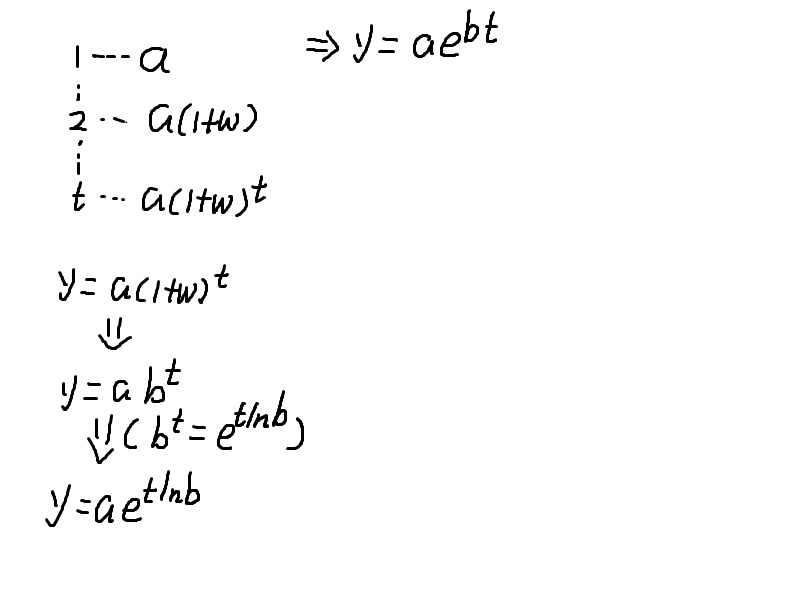 1 --- a ⇒ y = ae^{bt}
2 -- a(1+w)
t --- a(1+w)^t
y = a(1+w)^t
⇓
y = a b^t
⇓ ( b^t = e^{tlnb} )
y = ae^{tlnb}